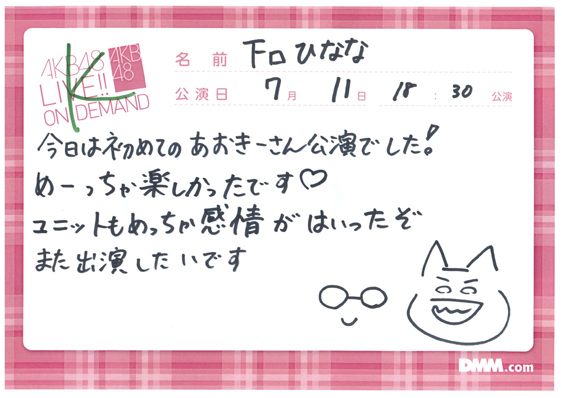 AKB48
LIVE!!
ON DEMAND
AKB
48
K
名前 下口ひなな
公演日 7月 11日 18:30 公演
今日は初めてのあおきーさん公演でした!
めーっちゃ楽しかったです♡
ユニットもめっちゃ感情がはいったぞ
また出演したいです
DMM.com